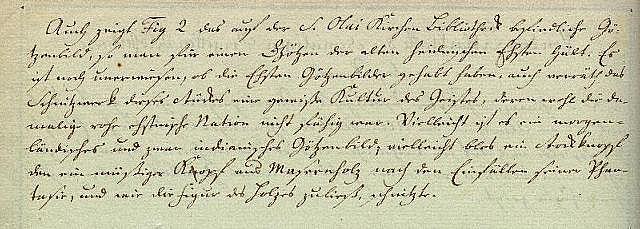 Auch zeigt Fig 2 das auf der S. Olai Kirchen Bibliothek befindliche Gö-
tzenbild, so man für einen Götzen der alten heidnischen Ehsten hält. Es
ist noch unerwiesen, ob die Ehsten Götzenbilder gehabt haben, auch verräth das
Schnitzwerk dieses Stückes eine gewisse Kultur des Geistes, deren wohl die da-
malige rohe ehstnische Nation nicht fähig war. Vielleicht ist es ein morgen-
ländisches und zwar indianisches Götzenbild, vielleicht blos ein Stockknopf
den ein müssiger Kopf aus Masernholz nach den Einfällen seiner Phan-
tasie, und wie die Figur des Holzes zuliess, schnitzte.